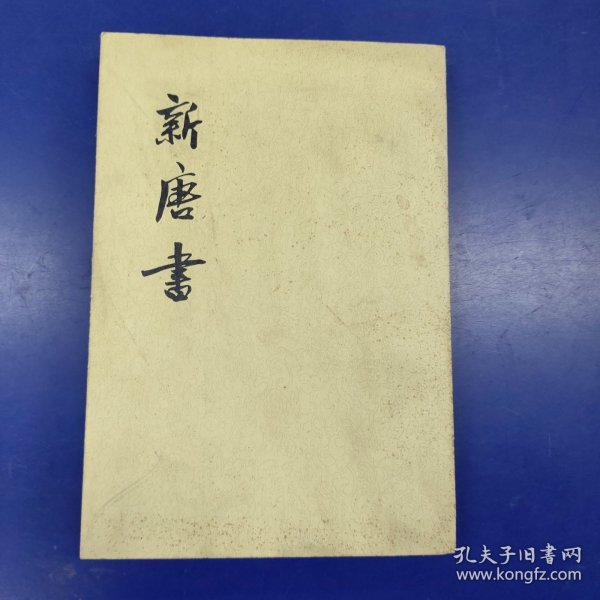 新唐書
孔夫子旧書网
www.kongfz.com